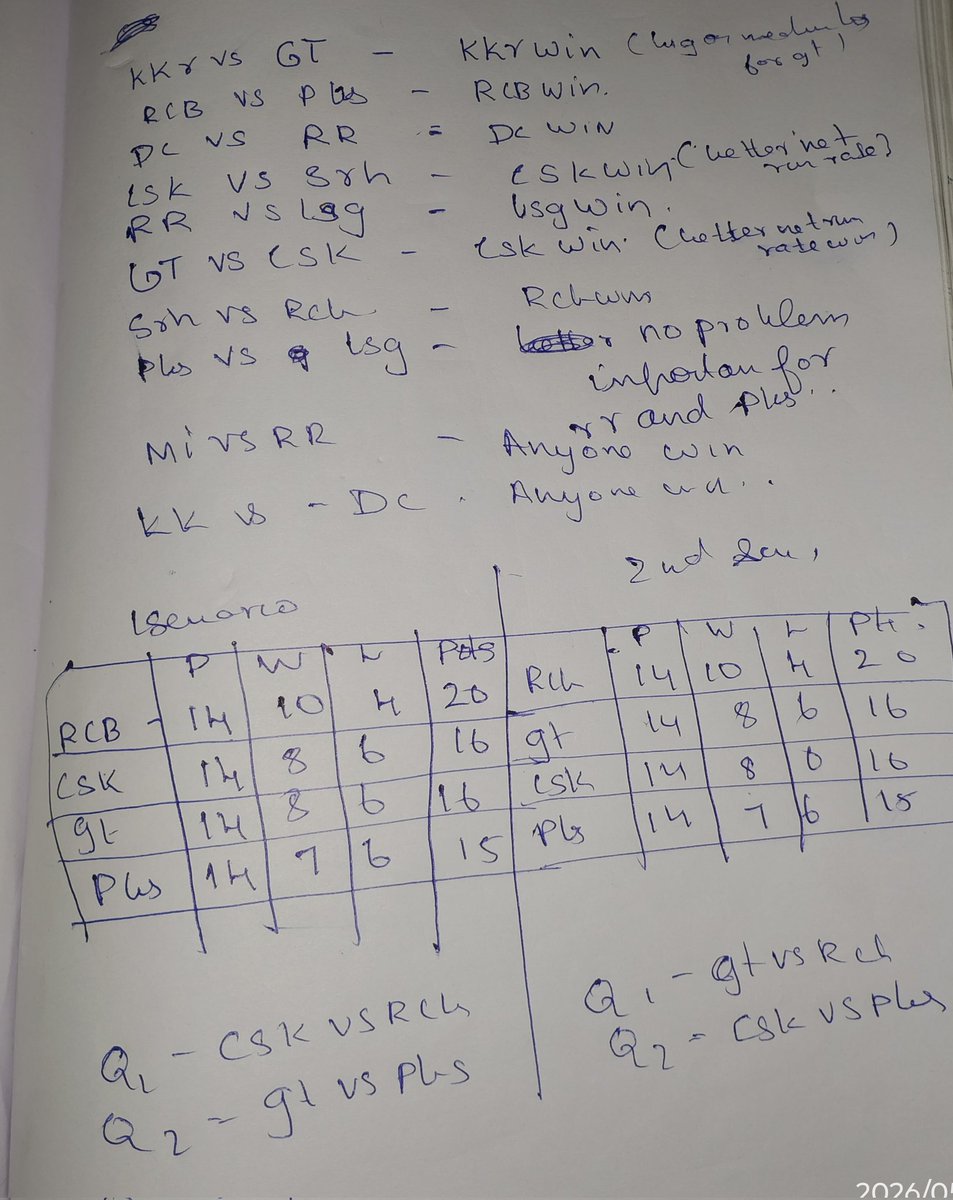 KKr vs GT - KKr win (
for gt)
RCB vs Pbs - RCB win.
DC vs RR = DC WIN
CSK vs Srh - CSK win (better net
run rate)
RR vs lsg - lsg win.
GT vs CSK - CSK win. (better net run
rate win)
Srh vs Rcb - Rcb wins
Pbs vs lsg - no problem
for
rr and Pbs..
Mi vs RR - Anyone win
KK vs - DC . Anyone
2nd
P W L Pts
RCB - 14 10 4 20
CSK 14 8 6 16
gt 14 8 6 16
Pbs 14 7 6 15
P W L Pts
Rcb 14 10 4 20
gt 14 8 6 16
CSK 14 8 6 16
Pbs 14 7 6 15
Q1 - CSK vs Rcb
Q2 = gt vs Pbs
Q1 - gt vs Rcb
Q2 = CSK vs Pbs